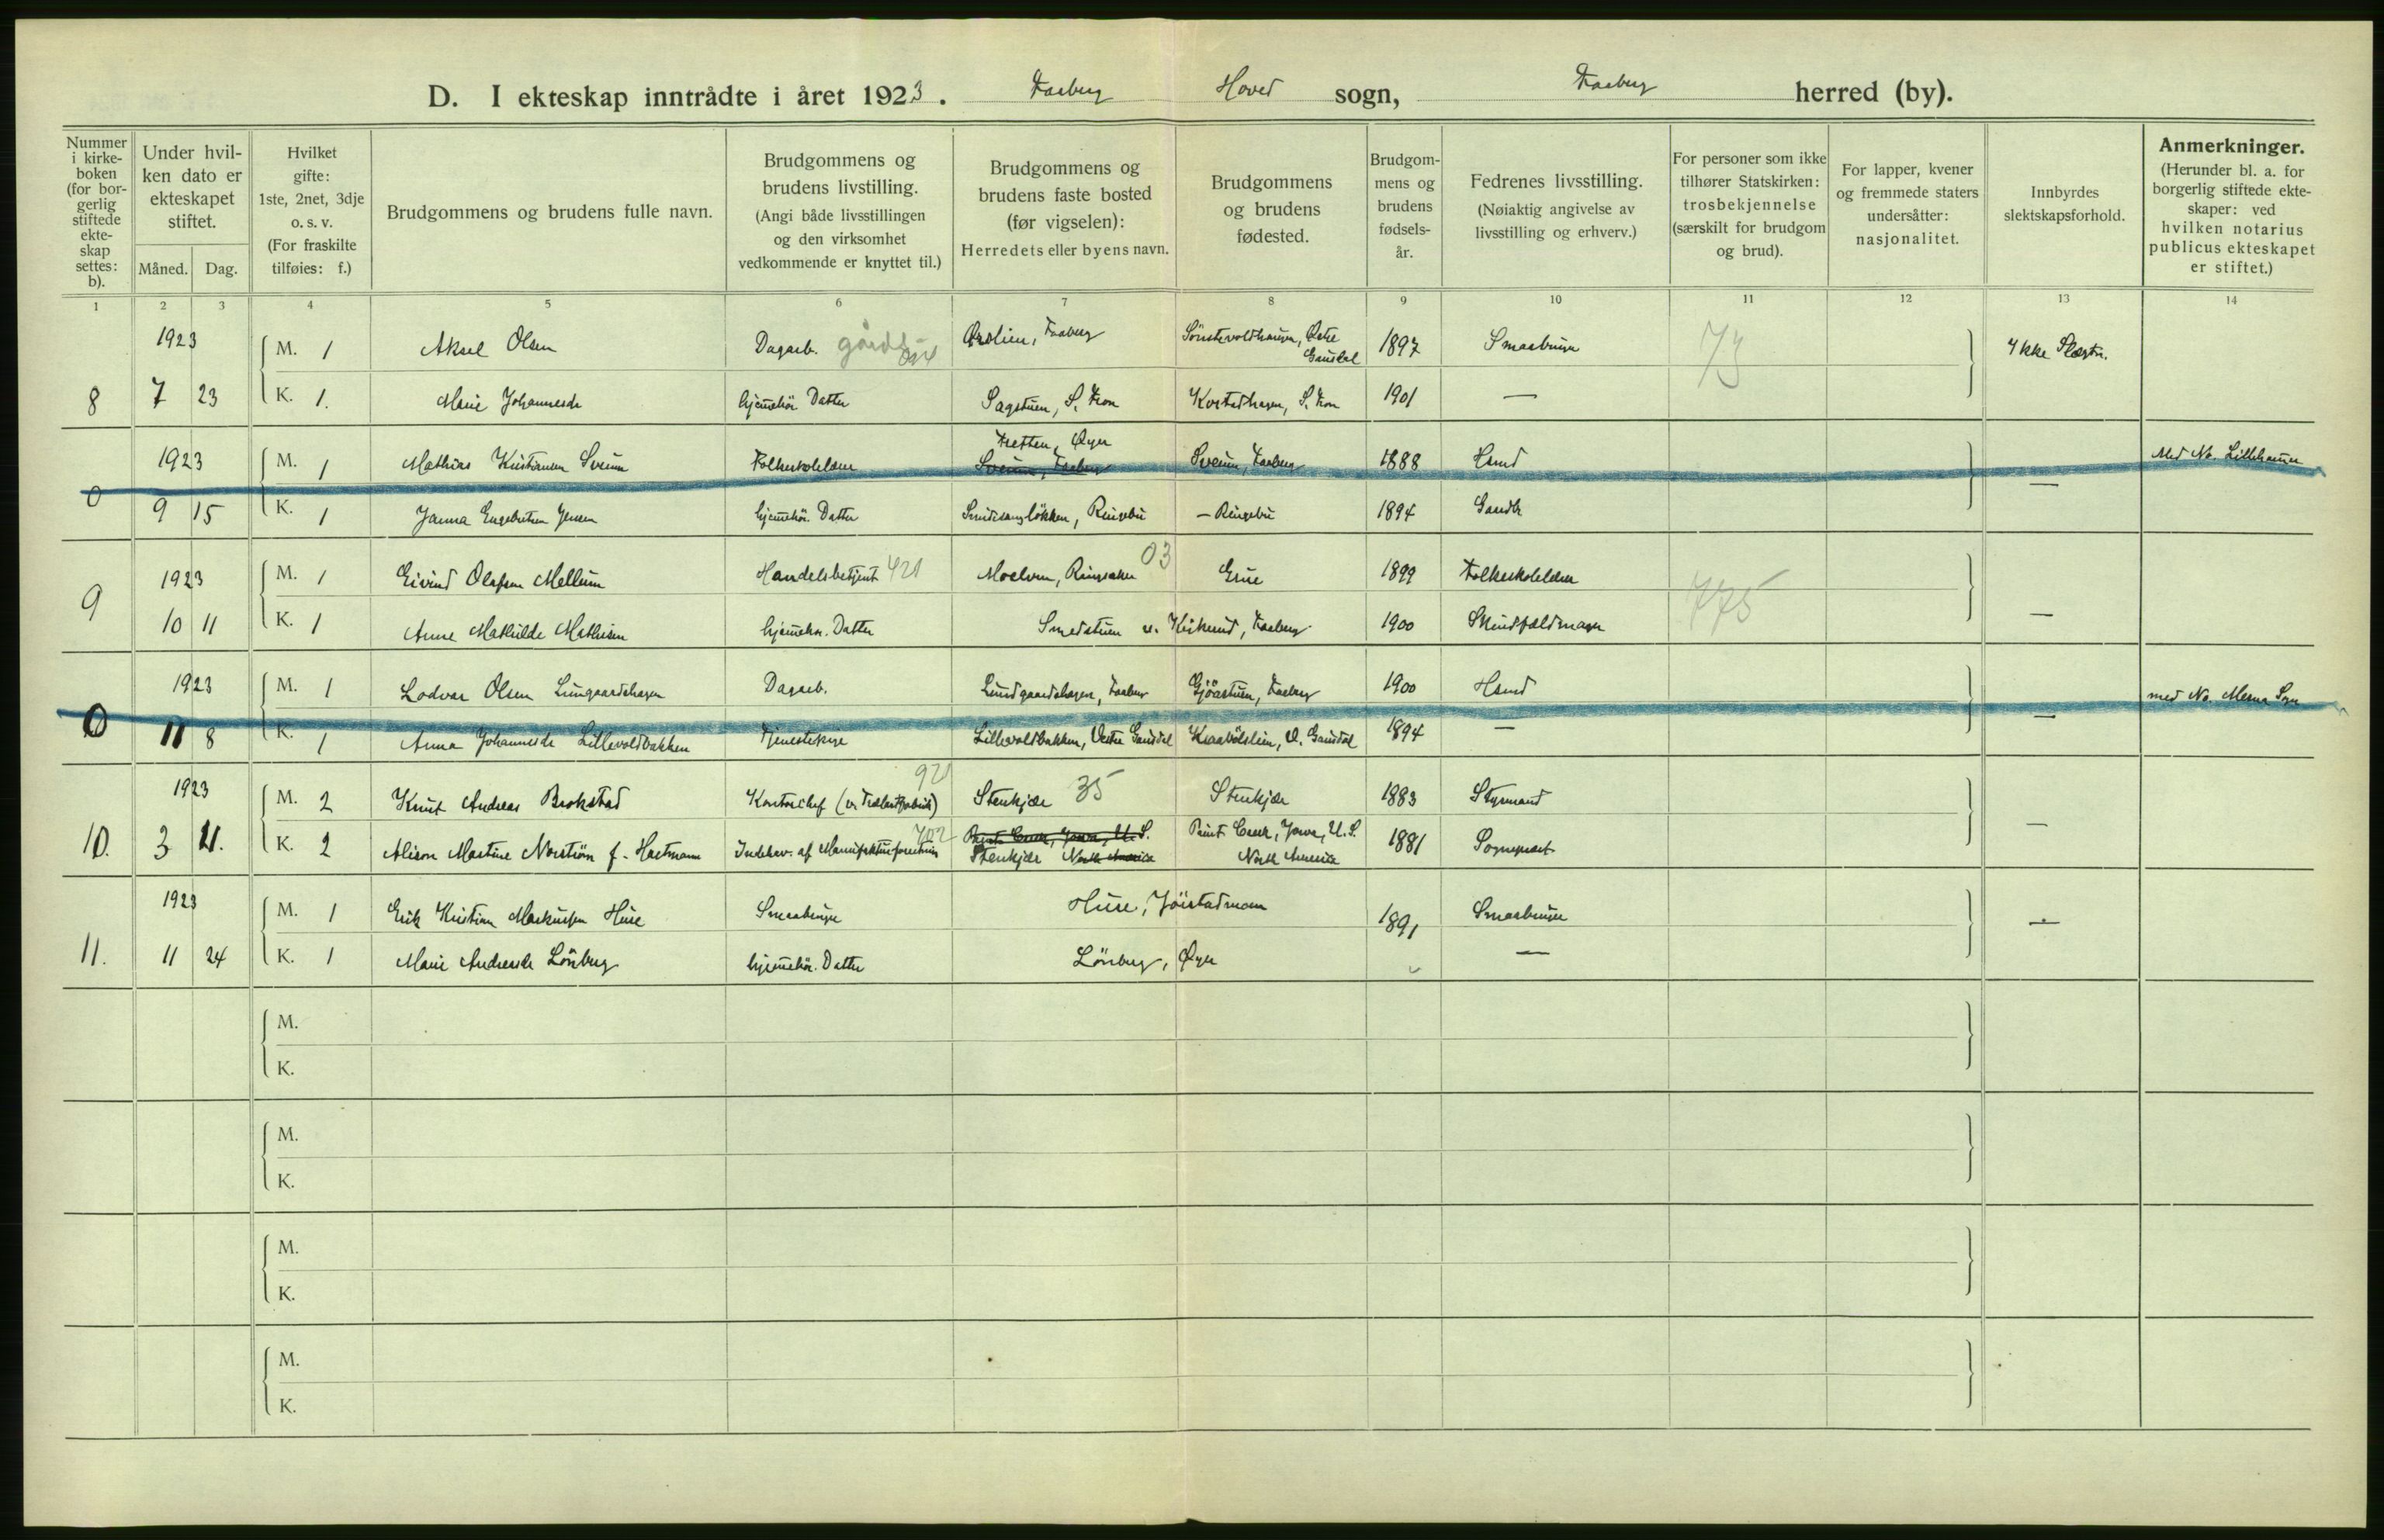 D. I ekteskap inntrådte i året 1923. Faaberg Hoved sogn, Faaberg herred (by).
Nummer i kirke- boken (for bor- gerlig stiftede ekte- skap settes: b).
Under hvil- ken dato er ekteskapet stiftet.
Måned. Dag.
Hvilket gifte: 1ste, 2net, 3dje o. s. v. (For fraskilte tilføies: f.)
Brudgommens og brudens fulle navn.
Brudgommens og brudens livstilling. (Angi både livsstillingen og den virksomhet vedkommende er knyttet til.)
Brudgommens og brudens faste bosted (før vigselen): Herredets eller byens navn.
Brudgommens og brudens fødested.
Brudgom- mens og brudens fødsels- år.
Fedrenes livsstilling. (Nøiaktig angivelse av livsstilling og erhverv.)
For personer som ikke tilhører Statskirken: trosbekjennelse (særskilt for brudgom og brud).
For lapper, kvener og fremmede staters undersåtter: nasjonalitet.
Innbyrdes slektskapsforhold.
Anmerkninger. (Herunder bl. a. for borgerlig stiftede ekte- skaper: ved hvilken notarius publicus ekteskapet er stiftet.)
1 2 3 4 5 6 7 8 9 10 11 12 13 14
1923 M. 1 Aksel Olsen Dagarb. Faaberg Østre Gausdal 1897 Smaabruger Ikke Slægtn.
8 7 23 K. 1. Marie Johannesdr hjemmehør. Datter Sagstuen, S. Fron S. Fron 1901 —
Tretten, Øyer
1923 M. 1 Mathias Kristiansen Sveum Folkeskolelærer Sveum, Faaberg Sveum, Faaberg 1888 Hsmd Med No. Lillehammer
0 9 15 K. 1 Janna Engebretsen Jensen hjemmehør. Datter Ringebu — Ringebu 1894 Gaardbr —
1923 M. 1 Eivind Olafsen Mellum Handelsbetjent 421 Moelven, Ringsaker 03 Grue 1899 Folkeskolelærer 775
9 10 11 K. 1 Anne Mathilde Mathisen hjemmehør. Datter Smedstuen Faaberg 1900 Skindfældmager —
1923 M. 1 Lodvar Olsen Lungaardshagen Dagarb. Lundgaardshagen, Faaberg Gjøastuen, Faaberg 1900 Hsmd med No. Mesna Sogn
0 11 8 K. 1 Anna Johannesdr Lillevoldbakken Tjenestepige Lillevoldbakken, Vestre Gausdal V. Gausdal 1894 — —
1923 M. 2 Knut Andreas Brokstad Kontorchef 921 Stenkjær 35 Stenkjær 1883 Styrmand
10. 3 21. K. 2 Alison Martine Norstrøm f. Hartmann Indehav. af Manufakturforretning 702 Paint Creek, Jowa, U.S. Paint Creek, Jowa, U.S. 1881 Sogneprest —
Stenkjær North America North America
1923 M. 1 Erik Kristian Markussen Huse Smaabruger Huse, Jöirstadmoen 1891 Smaabruger —
11. 11 24 K. 1 Marie Andreasdr Lönberg hjemmehør. Datter Lönberg, Øyer —
M.
K.
M.
K.
M.
K.
M.
K.